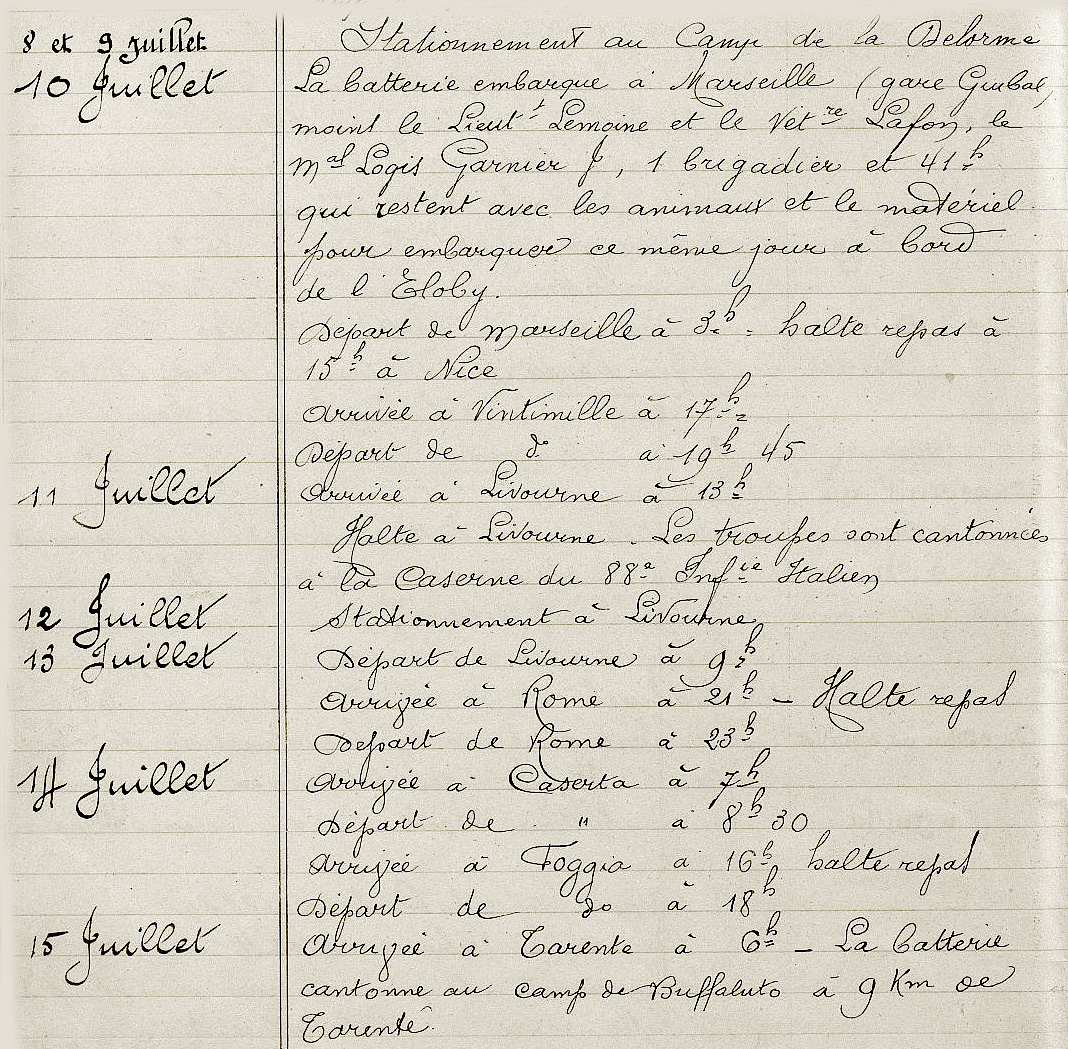 8 et 9 juillet Stationnement au Camp de la Delorme
10 Juillet La batterie embarque à Marseille (gare Guibal)
moins le Lieutt Lemoine et le Vetre Lafon, le
Mal Logis Garnier J, 1 brigadier et 41h
qui restent avec les animaux et le matériel
pour embarquer ce même jour à bord
de l'Eloby.
Départ de Marseille à 3h - halte repas à
15h à Nice
Arrivée à Vintimille à 17h
Départ de do à 19h 45
11 Juillet Arrivée à Livourne à 13h
Halte à Livourne. Les troupes sont cantonnées
à la Caserne du 88e Infie Italien
12 Juillet Stationnement à Livourne
13 Juillet Départ de Livourne à 9h
Arrivée à Rome à 21h - Halte repas
Départ de Rome à 23h
14 Juillet Arrivée à Caserta à 7h
Départ de " à 8h 30
Arrivée à Foggia à 16h halte repas
Départ de do à 18h
15 Juillet Arrivée à Tarente à 6h - La batterie
cantonne au camp de Buffaluto à 9 Km de
Tarente.